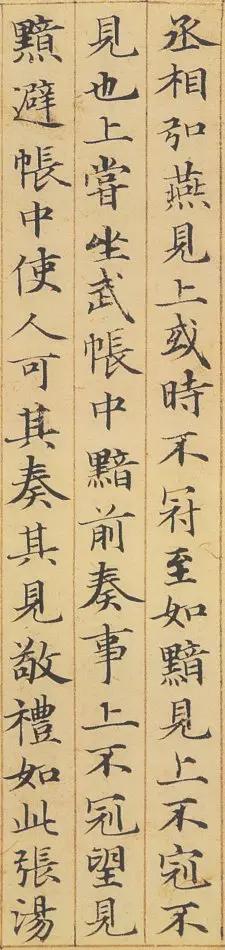 丞相弘燕見上或時不冠至如黯見上不冠不
見也上嘗坐武帳中黯前奏事上不冠望見
黯避帳中使人可其奏其見敬禮如此張湯